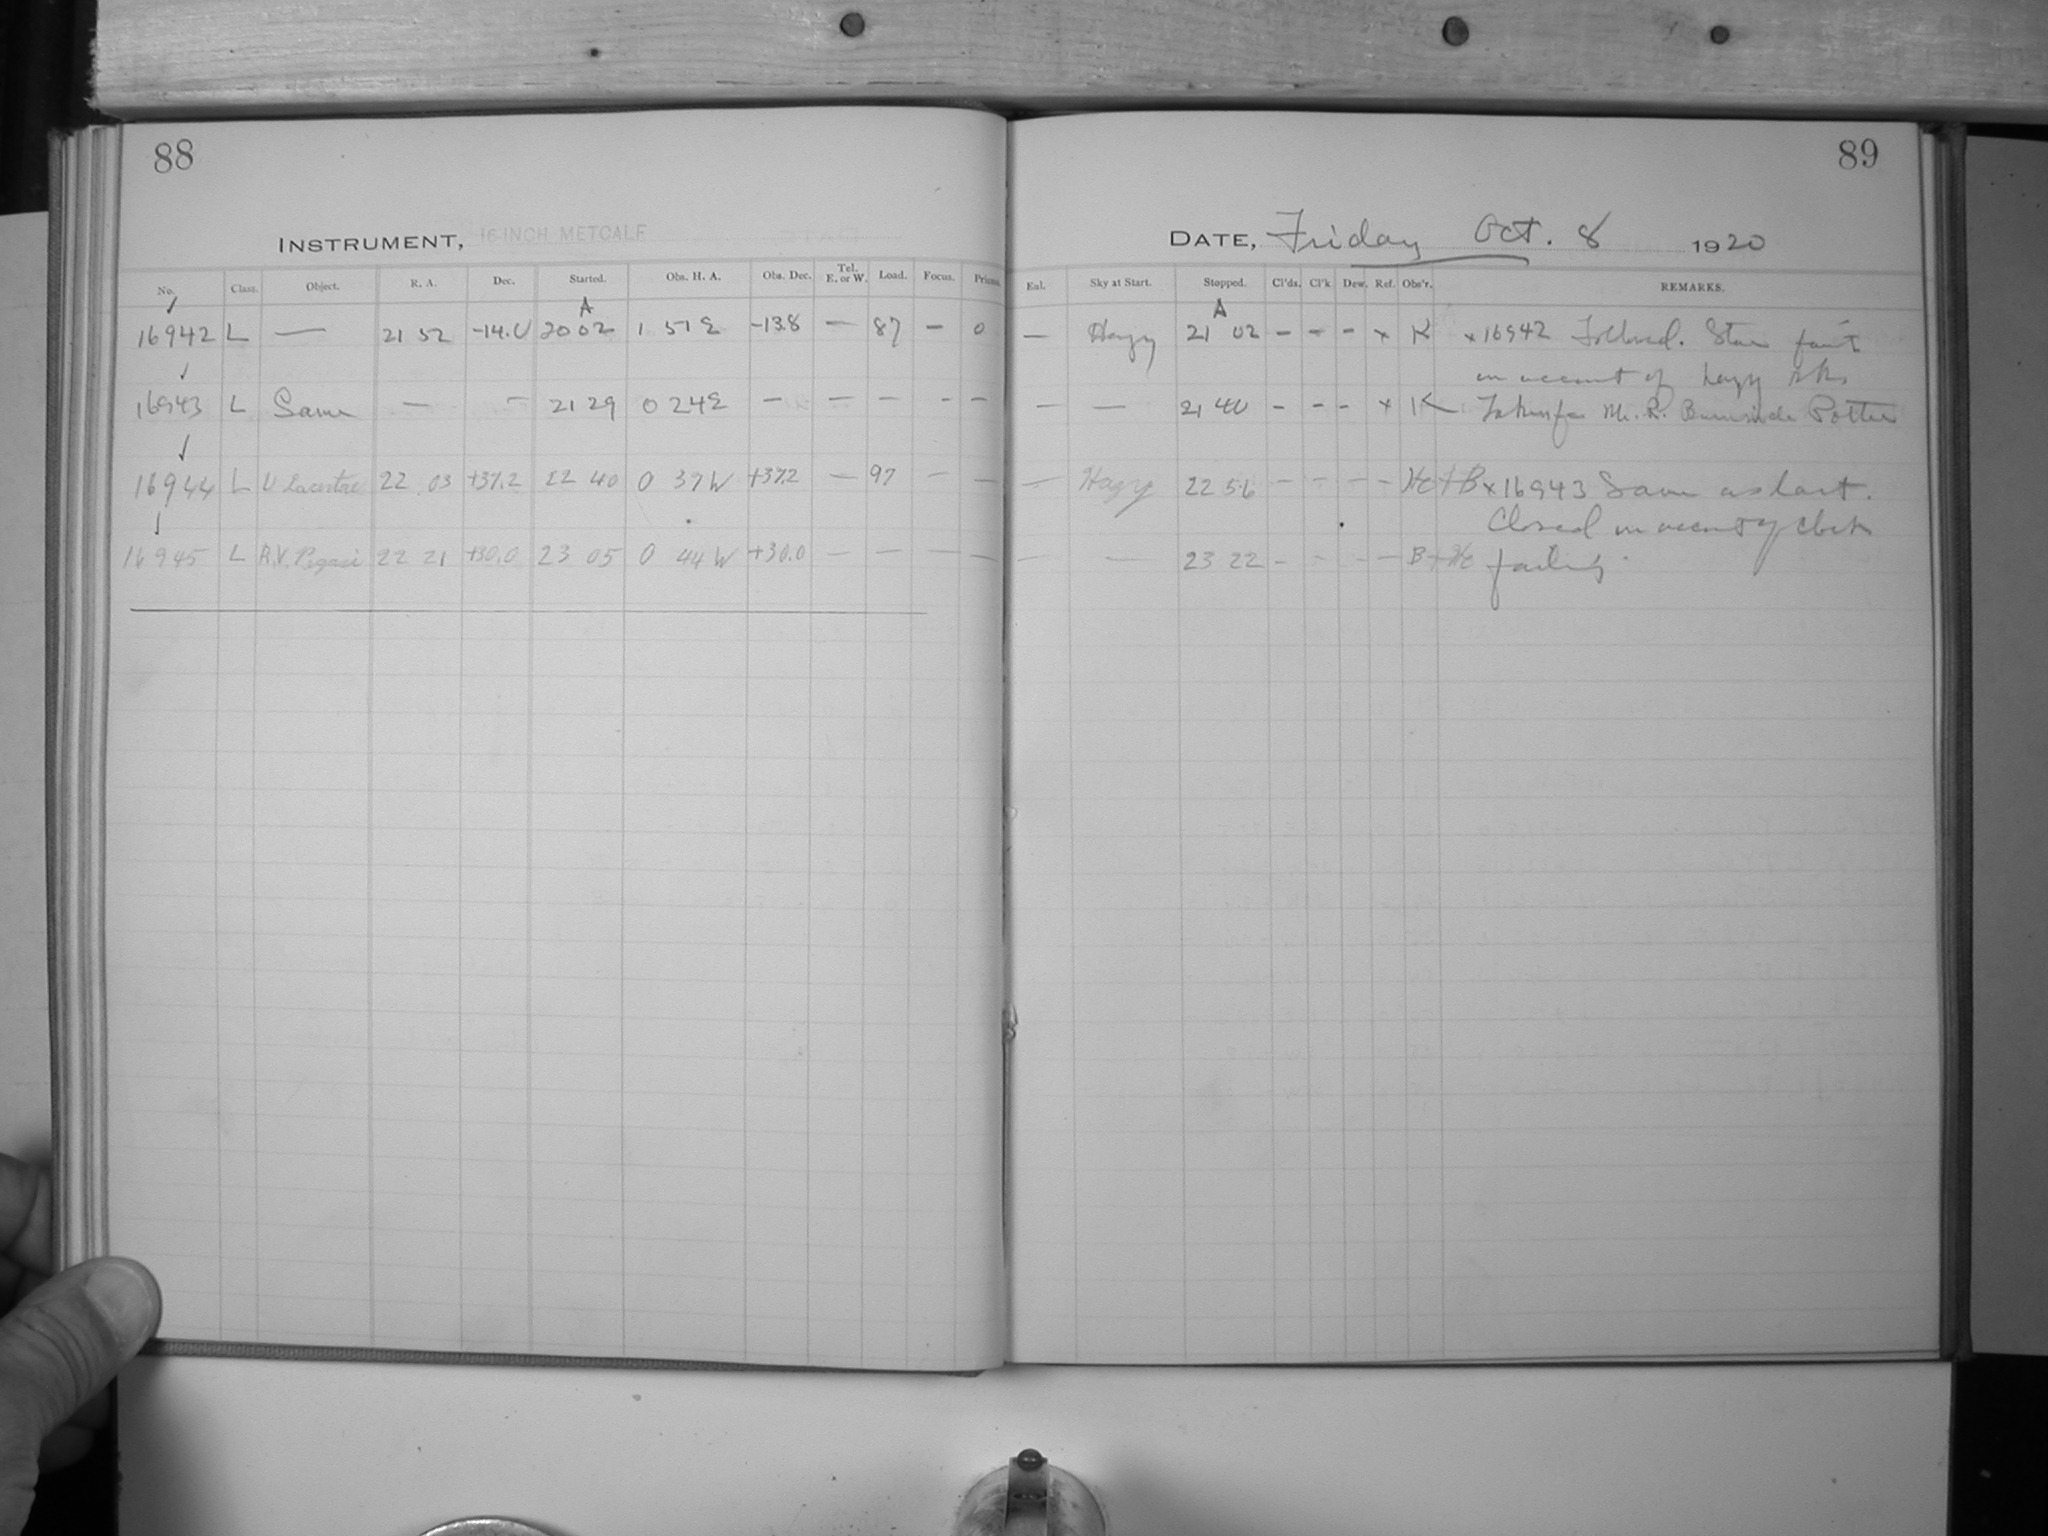 88
INSTRUMENT, 16-INCH METCALF
No. Class. Object. R. A. Dec. Started. Obs. H. A. Obs. Dec. Tel. E. or W. Load. Focus. Prisms.
A
16942 L — 21 52 -14.0 20 02 1 51 E -13.8 — 87 - 0
16943 L Same — - 21 29 0 24 E - - - - -
16944 L U Lacertae 22 03 +37.2 22 40 0 37 W +37.2 — 97 - -
16945 L R.V. Pegasi 22 21 +30.0 23 05 0 44 W +30.0 — — — —
89
DATE, Friday Oct. 8 1920
Eul. Sky at Start. Stopped. Cl'ds. Cl'k Dew. Ref. Obs'r. REMARKS.
A
— Hazy 21 02 - - - x K x 16942 Followed. Stars faint
on account of hazy sky
— — 21 40 - - - x K Taken for Mr. R. Burnside Potter
— Hazy 22 56 - - - - He + B x 16943 Same as last.
Closed on account of clock
— — 23 22 - - - - B + He failing.